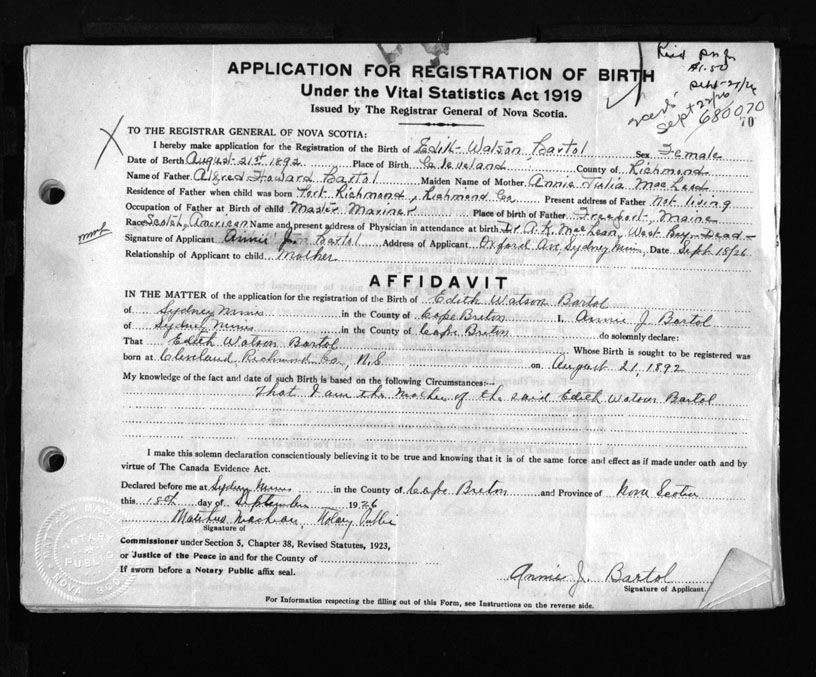 APPLICATION FOR REGISTRATION OF BIRTH
Under the Vital Statistics Act 1919
Issued by The Registrar General of Nova Scotia.
$1.50
Sept 27/26
Sept 27/26
680070
70
TO THE REGISTRAR GENERAL OF NOVA SCOTIA:
I hereby make application for the Registration of the Birth of Edith Watson Bartol Sex Female
Date of Birth August 21st 1892 Place of Birth Cleveland County of Richmond
Name of Father Alfred Howard Bartol Maiden Name of Mother Annie Julia MacLeod
Residence of Father when child was born Port Richmond, Richmond Co, Present address of Father Not living
Occupation of Father at Birth of child Master Mariner Place of birth of Father Freeport, Maine
Race Scotch, American Name and present address of Physician in attendance at birth Dr P. K. MacLean, West Bay - Dead -
Signature of Applicant Annie J. Bartol Address of Applicant Oxford Ave, Sydney Mines, Date Sept 18/26
Relationship of Applicant to child Mother
AFFIDAVIT
IN THE MATTER of the application for the registration of the Birth of Edith Watson Bartol
of Sydney Mines in the County of Cape Breton I, Annie J Bartol
of Sydney Mines in the County of Cape Breton do solemnly declare:
That Edith Watson Bartol Whose Birth is sought to be registered was
born at Cleveland, Richmond Co, N.S. on August 21, 1892
My knowledge of the fact and date of such Birth is based on the following Circumstances:-
That I am the mother of the said Edith Watson Bartol
I make this solemn declaration conscientiously believing it to be true and knowing that it is of the same force and effect as if made under oath and by
virtue of The Canada Evidence Act.
Declared before me at Sydney Mines in the County of Cape Breton and Province of Nova Scotia
this 18th day of September 1926
Notary Public
Signature of
Commissioner under Section 5, Chapter 38, Revised Statutes, 1923,
or Justice of the Peace in and for the County of
If sworn before a Notary Public affix seal.
NOTARY PUBLIC
Annie J. Bartol
Signature of Applicant.
For Information respecting the filling out of this Form, see Instructions on the reverse side.